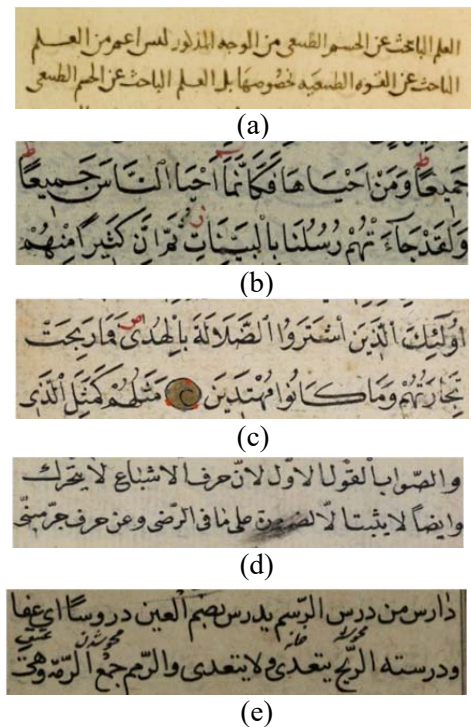 العلم الباحث عن الجسم الطبيعى من الوجه المذكور ليس اعم من العلم
الباحث عن القوه الطبيعيه بخصوصها بل العلم الباحث عن الجسم الطبيعى
(a)
جَمِيعًا وَمَنْ اَحْيَاهَا فَكَاَنَّمَا اَحْيَا النَّاسَ جَمِيعًا
وَلَقَدْ جَاءَتْهُمْ رُسُلُنَا بِالْبَيِّنَاتِ ثُمَّ اِنَّ كَثِيرًا مِنْهُمْ
(b)
اُولَئِكَ الَّذِينَ اشْتَرَوُا الضَّلَالَةَ بِالْهُدَى فَمَا رَبِحَتْ
تِجَارَتُهُمْ وَمَا كَانُوا مُهْتَدِينَ مَثَلُهُمْ كَمَثَلِ الَّذِى
(c)
والصّواب القول الاوّل لانّ حرف الاشباع لا يتحرّك
وايضاً لا يثبت الّا لضرورة على ما فى الرّضى وعن حرف جرّ
(d)
دارس من درس الرّسم يدرس بضم العين دروسا اى عفا
ودرسته الرّيح يتعدى ولا يتعدى والرّمم جمع الرّمّة وهى
(e)